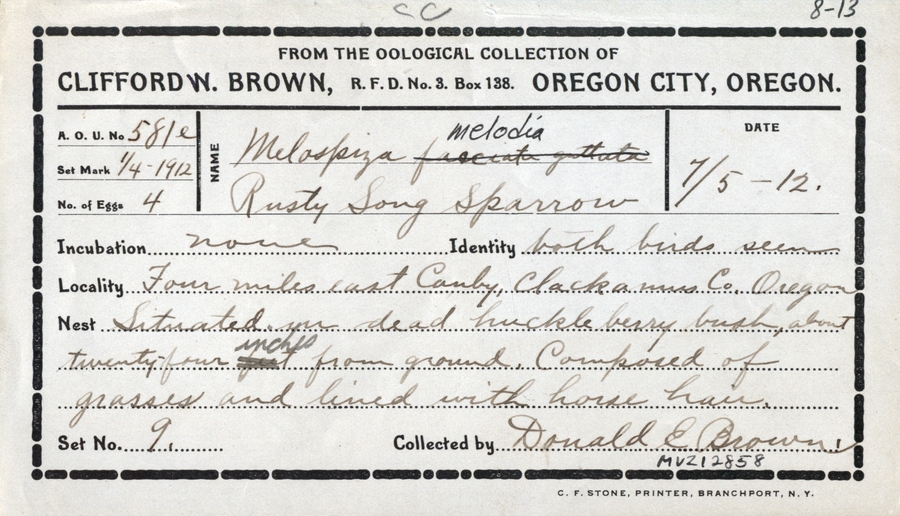 CC
8-13
FROM THE OOLOGICAL COLLECTION OF
CLIFFORD W. BROWN, R. F. D. No. 3. Box 138. OREGON CITY, OREGON.
A. O. U. No 581e
Set Mark 1/4-1912
No. of Eggs 4
NAME
melodia
Melospiza fasciata guttata
Rusty Song Sparrow
DATE
7/5-12.
Incubation none Identity both birds seen
Locality Four miles east Canby, Clackamus Co. Oregon
Nest Situated in dead huckleberry bush, about
inches
twenty-four feet from ground. Composed of
grasses and lined with horse hair.
Set No. 9. Collected by Donald E Brown.
MVZ12858
C. F. STONE, PRINTER, BRANCHPORT, N. Y.